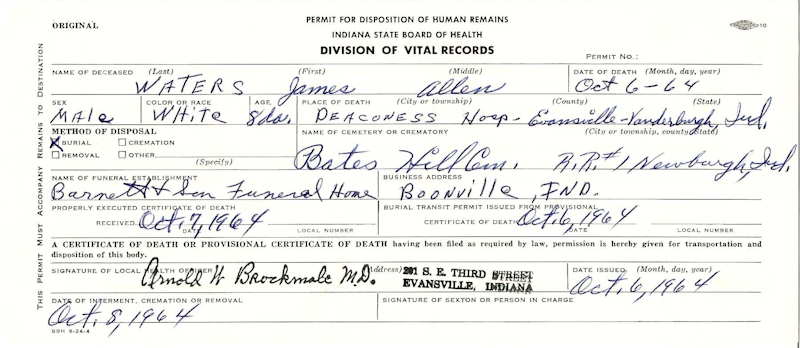 ORIGINAL
PERMIT FOR DISPOSITION OF HUMAN REMAINS
INDIANA STATE BOARD OF HEALTH
DIVISION OF VITAL RECORDS
PERMIT NO.:
THIS PERMIT MUST ACCOMPANY REMAINS TO DESTINATION
NAME OF DECEASED (Last) (First) (Middle) DATE OF DEATH (Month, day, year)
WATERS James Allen Oct 6-64
SEX COLOR OR RACE AGE PLACE OF DEATH (City or township) (County) (State)
Male White 8da. DEACONESS Hosp- Evansville-Vanderburgh, Ind.
METHOD OF DISPOSAL NAME OF CEMETERY OR CREMATORY (City or township, county, state)
X BURIAL CREMATION
REMOVAL OTHER (Specify)
Bates Hill Cem. R.R.#1 Newburgh, Ind.
NAME OF FUNERAL ESTABLISHMENT BUSINESS ADDRESS
Barnett & Son Funeral Home Boonville, IND.
PROPERLY EXECUTED CERTIFICATE OF DEATH BURIAL TRANSIT PERMIT ISSUED FROM PROVISIONAL
RECEIVED Oct. 7, 1964 CERTIFICATE OF DEATH Oct. 6, 1964
DATE LOCAL NUMBER DATE LOCAL NUMBER
A CERTIFICATE OF DEATH OR PROVISIONAL CERTIFICATE OF DEATH having been filed as required by law, permission is hereby given for transportation and
disposition of this body.
SIGNATURE OF LOCAL HEALTH OFFICER (Address) DATE ISSUED (Month, day, year)
Arnold W Brockmole M.D. 201 S. E. THIRD STREET
EVANSVILLE, INDIANA Oct. 6, 1964
DATE OF INTERMENT, CREMATION OR REMOVAL SIGNATURE OF SEXTON OR PERSON IN CHARGE
Oct. 8, 1964
SBH 6-24-4